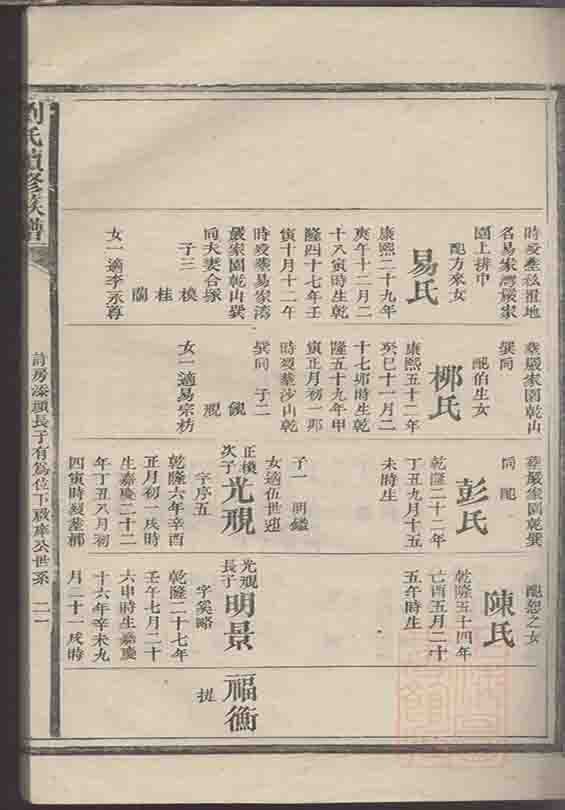 劉氏續修族譜
時歿塟私置地
名易家灣嚴家
園上排中
配方來女
易氏
康熙二十九年
庚午十二月二
十八寅時生乾
隆四十七年壬
寅十月十二午
時歿塟易家湾
嚴家園乾山巽
向夫妻合塚
子三 模
桂
蘭
女一適李丞尊
塟嚴家園乾山
巽向
配伯生女
柳氏
康熙五十二年
癸巳十一月二
十七卯時生乾
隆五十九年甲
寅正月初一卯
時歿塟沙山乾
巽向 子二
覬
視
女一適易宗枋
塟嚴家園乾巽
向 配
彭氏
乾隆二十二年
丁丑九月十五
未時生
子一 明鑑
女適伍世連
正模
次子
光視
字序五
乾隆六年辛酉
正月初一戌時
生嘉慶二十二
年丁丑八月初
四寅時歿塟柳
配恕之女
陳氏
乾隆五十四年
己酉五月二十
五午時生
光視
長子
明景
字奚略
乾隆二十七年
壬午七月二十
六申時生嘉慶
十六年辛未九
月二十一戌時
福衡
許房添顔長子有爲位下職庠公世系
二一